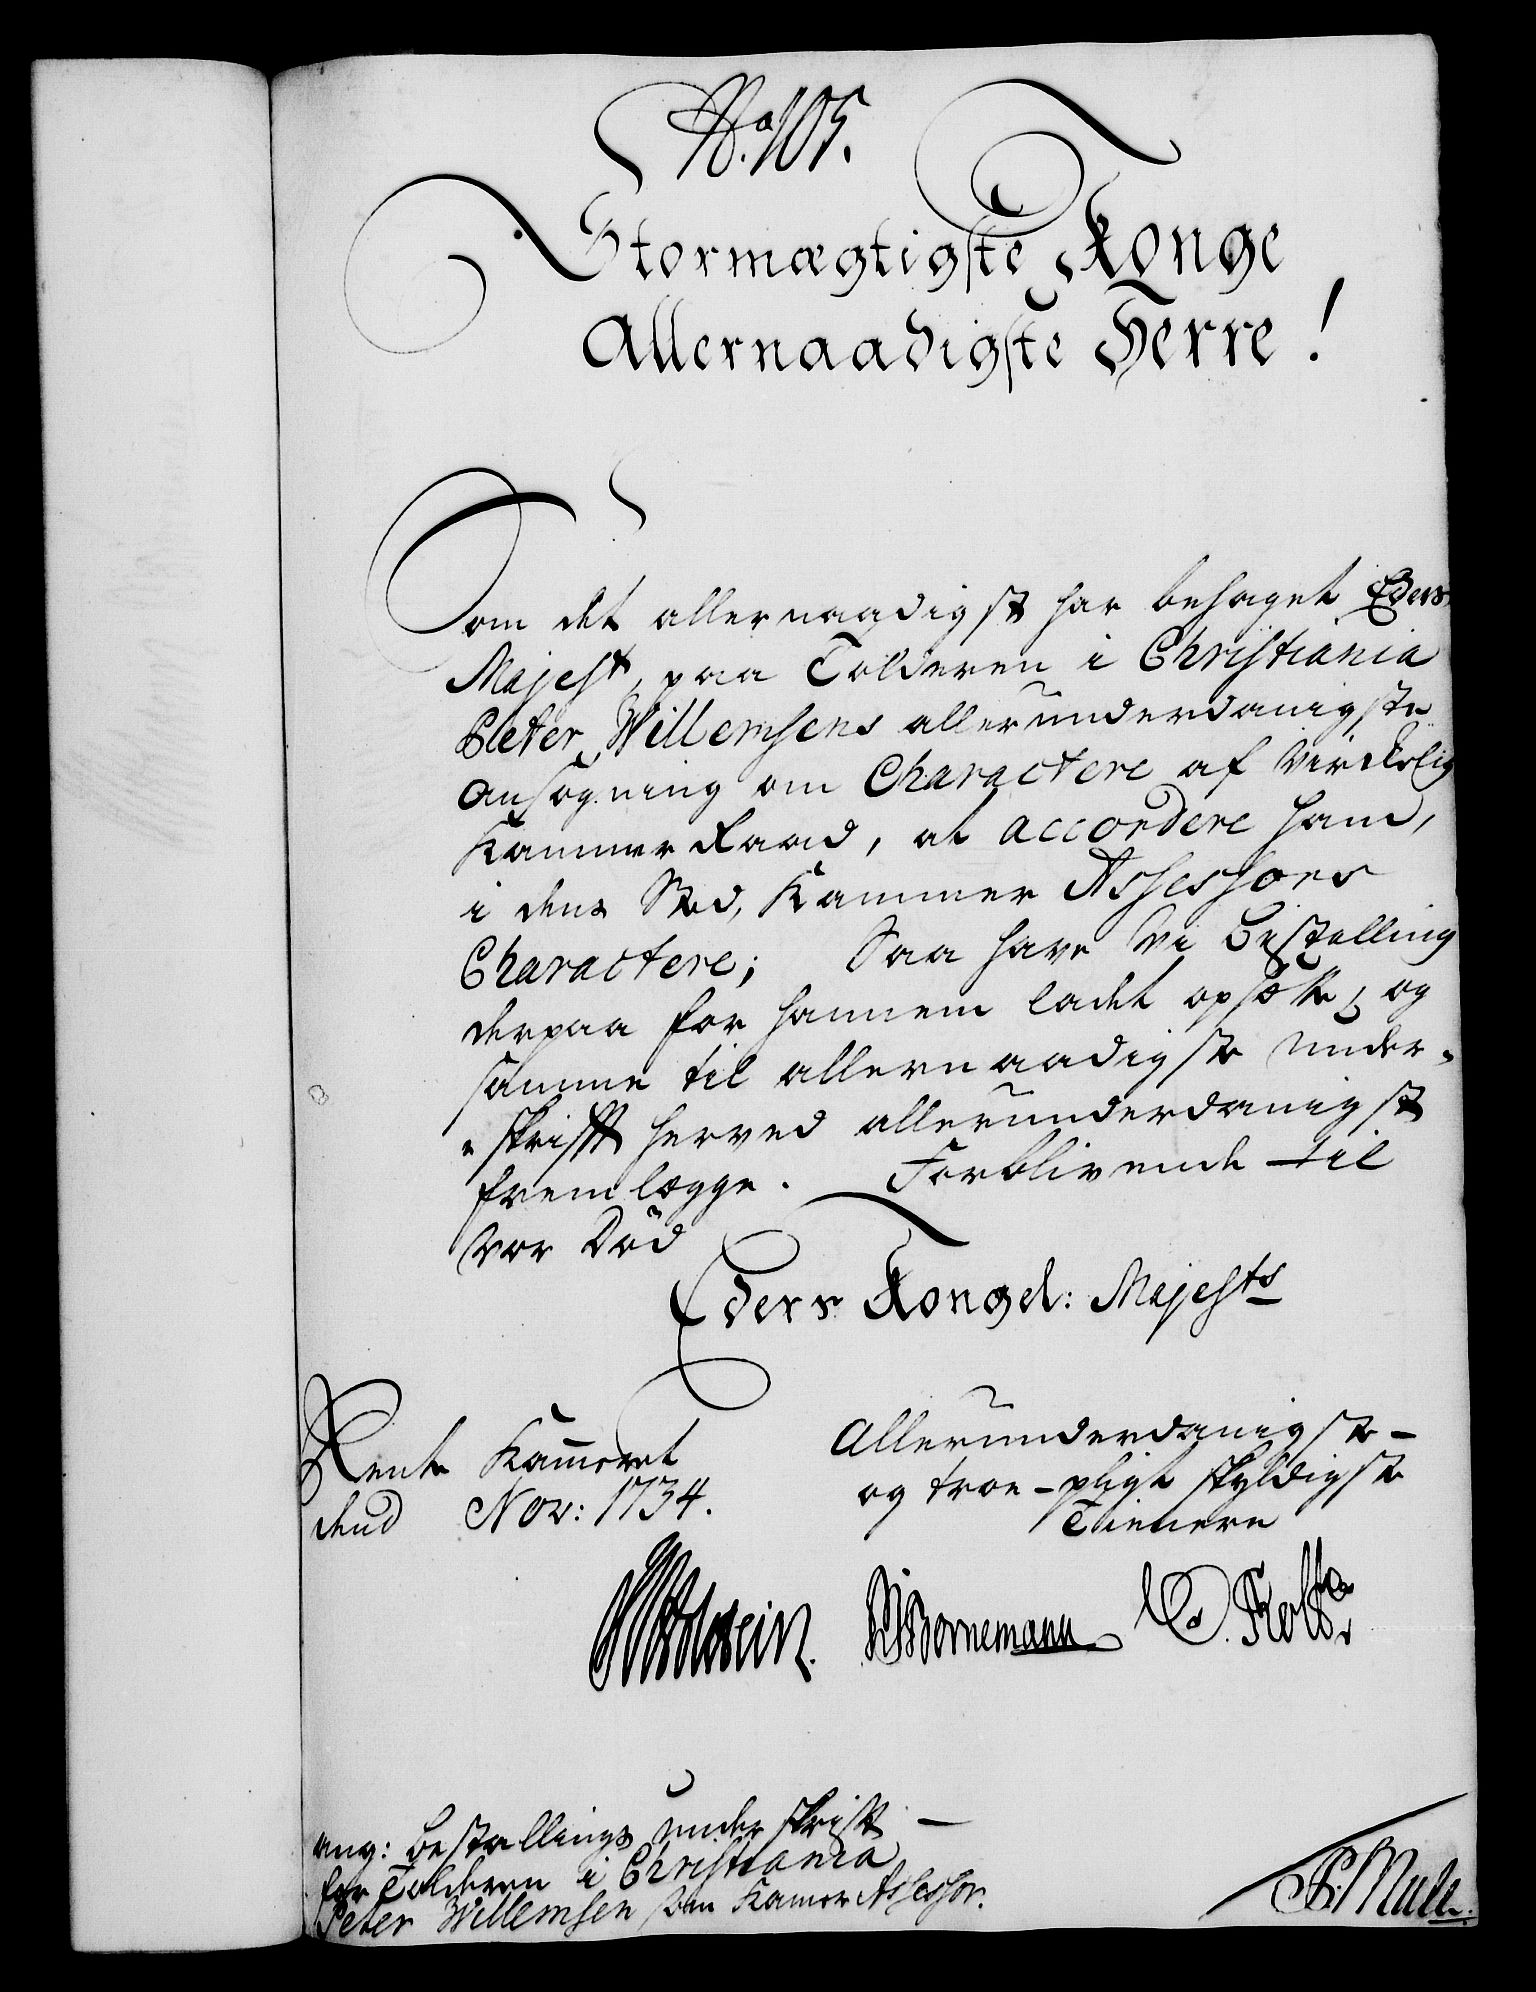 No. 105.
Stormægtigste Konge
Allernaadigste Herre!
Som det allernaadigst har behaget Eders
Majest, paa Tolderen i Christiania
Peter Willemsens allerunderdanigste
Ansøgning om Charactere af Virckelig
Kammer Raad, at accordere ham,
i dens Sted, Kammer Assessors
Charactere; Saa have Vi Bestelling
derpaa for hannem ladet opsætte, og
samme til allernaadigste under-
skrifft herved allerunderdanigst
fremlegge. Forblivende til
vor Død
Eders Kongel: Majests
Rente Kammeret
dend Nov: 1734.
Allerunderdanigste
og troe-pligt skyldigste
Tienere
Bornemann
ang: Bestallings underskrifft
for Tolderen i Christiania
Peter Willemsen som Kamer Assessor.